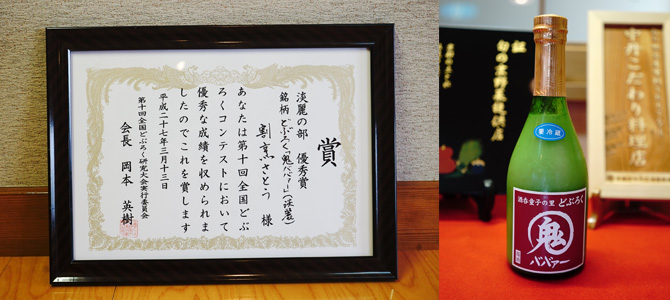 賞
淡麗の部　優秀賞
銘柄 どぶろく「鬼ババァー」(淡麗)
割烹さとう　様
あなたは第十回全国どぶ
ろくコンテストにおいて
優秀な成績を収められま
したのでこれを賞します
平成二十七年三月十三日
第十回全国どぶろく研究大会実行委員会
会長　岡本　英樹
要冷蔵
酒呑童子の里 どぶろく
鬼
ババァー
証
こだわり料理店